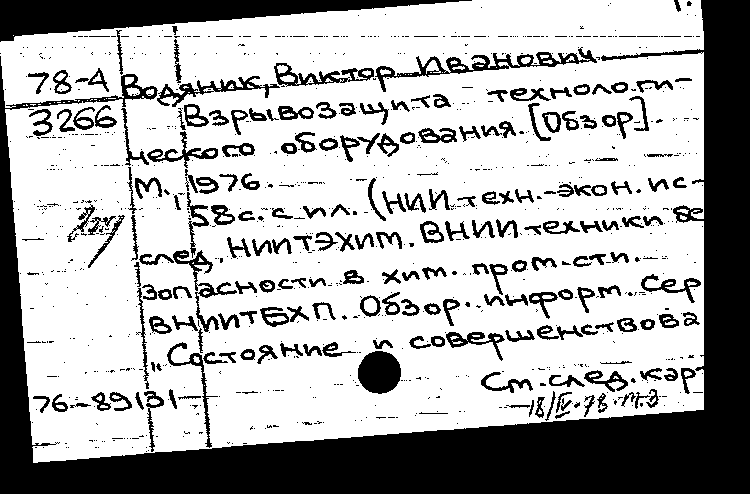 1.
78-4 Водяник, Виктор Иванович.
3266 Взрывозащита технологи-
ческого оборудования. [Обзор].
М., 1976.
58 с. с ил. (НИИ техн.-экон. ис-
след. НИИТЭХИМ. ВНИИ техники бе
зопасности в хим. пром-сти.
ВНИИТБХП. Обзор. информ. Сер
„Состояние и совершенствова
76-89131 См. след. кар
18/IV-78 т.з